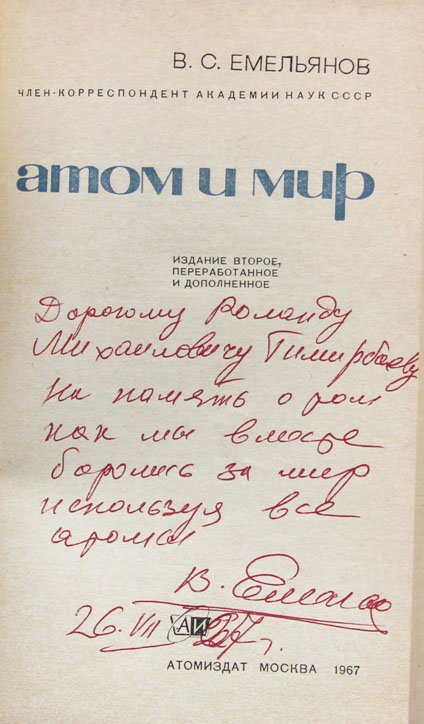 В. С. ЕМЕЛЬЯНОВ
ЧЛЕН-КОРРЕСПОНДЕНТ АКАДЕМИИ НАУК СССР
атом и мир
ИЗДАНИЕ ВТОРОЕ,
ПЕРЕРАБОТАННОЕ
И ДОПОЛНЕННОЕ
Дорогому Роланду
Михаиловичу Тимирбаеву
На память о том
как мы вместе
боролись за мир
используя все
атомы
В. Емельянов
26. VII 67 г.
АИ
АТОМИЗДАТ МОСКВА 1967